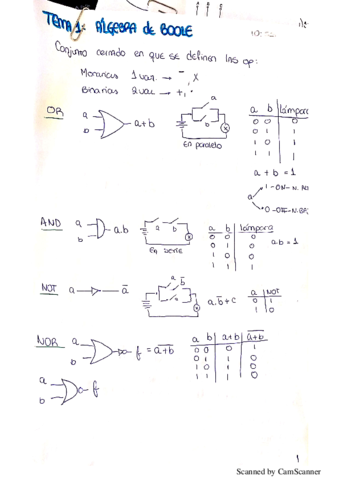 TEMA 1: ÁLGEBRA de BOOLE
Conjunto cerrado en que se definen las op:
Monarias 1 var. → ¯, x
Binarias 2 var → +, ·
OR a b a+b
a b
En paralelo
a b lámpara
0 0 0
0 1 1
1 0 1
1 1 1
a + b = 1
a 1-ON-N.
0-OFF-N.
AND a b a.b
a b
En serie
a b lámpara
0 0 0
0 1 0
1 0 0
1 1 1
a.b = 1
NOT a ā
a b̄
a.b̄+c
a NOT
0 1
1 0
NOR a b f = a̅+̅b̅
a b a+b a̅+̅b̅
0 0 0 1
0 1 1 0
1 0 1 0
1 1 1 0
a b f
1
Scanned by CamScanner